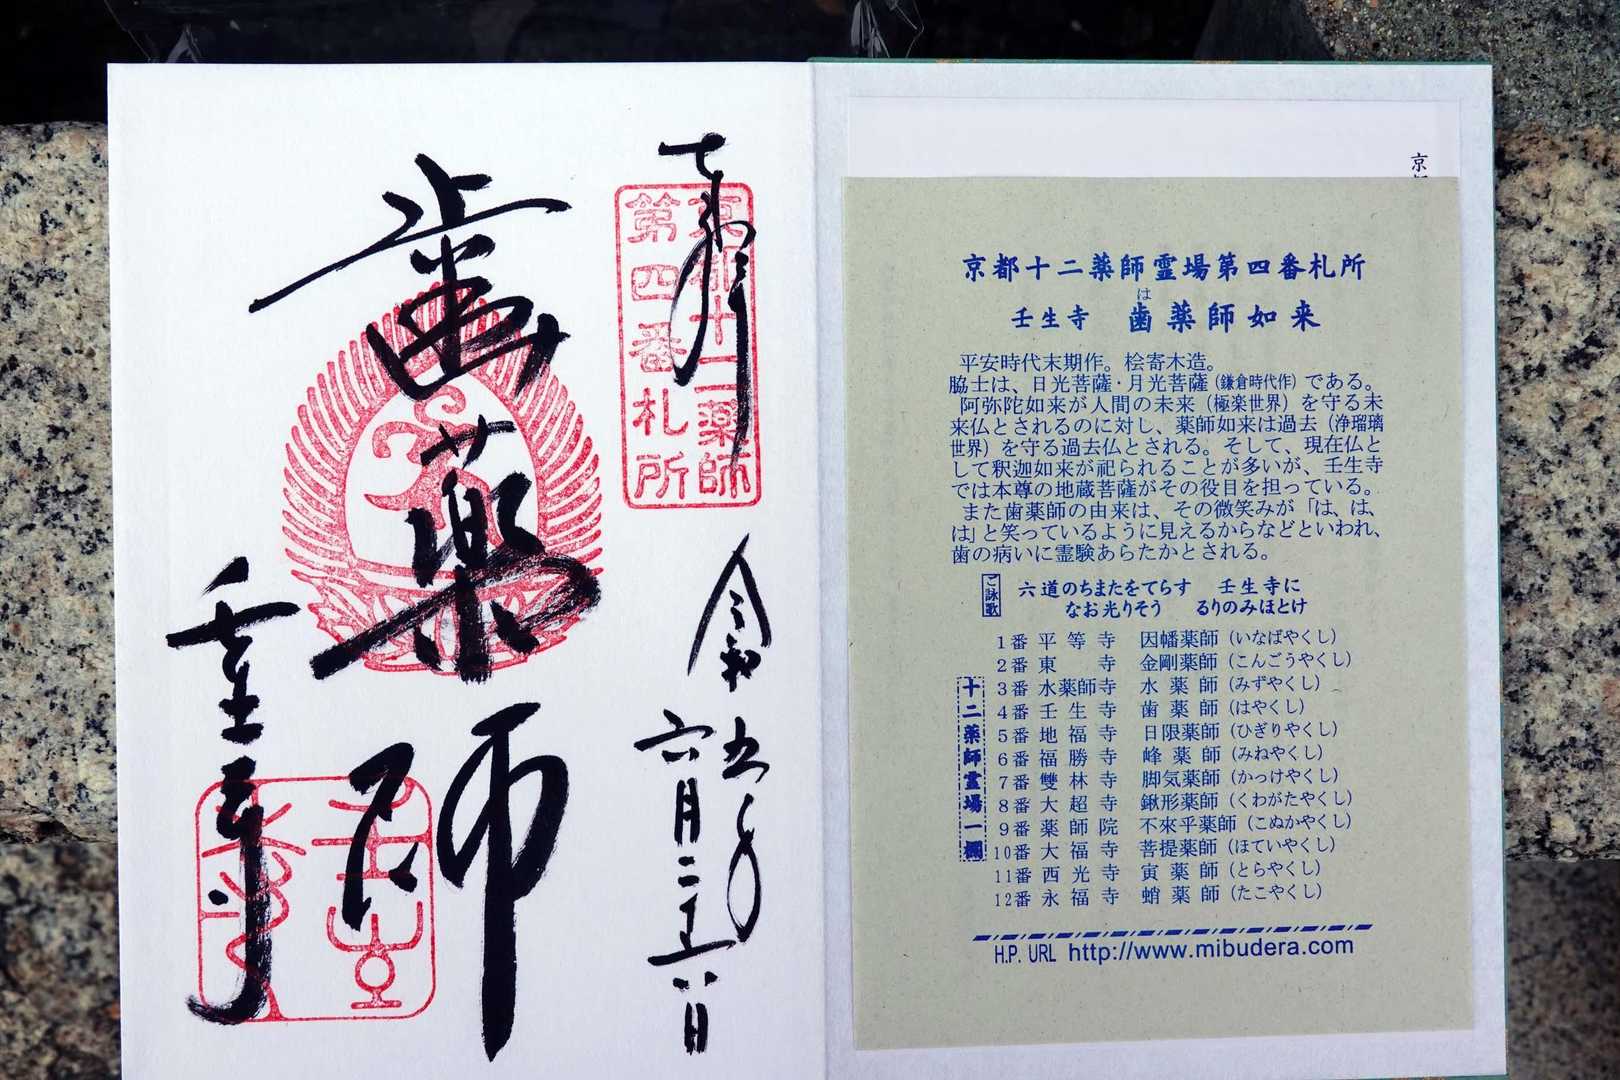 奉拝
京都十二薬師
第四番札所
令和五年
六月二十六日
歯薬師
壬生寺
京都十二薬師霊場第四番札所
は
壬生寺 歯薬師如来
平安時代末期作。桧寄木造。
脇士は、日光菩薩・月光菩薩(鎌倉時代作)である。
阿弥陀如来が人間の未来(極楽世界)を守る未
来仏とされるのに対し、薬師如来は過去(浄瑠璃
世界)を守る過去仏とされる。そして、現在仏と
して釈迦如来が祀られることが多いが、壬生寺
では本尊の地蔵菩薩がその役目を担っている。
また歯薬師の由来は、その微笑みが「は、は、
は」と笑っているように見えるからなどといわれ、
歯の病いに霊験あらたかとされる。
ご詠歌
六道のちまたをてらす 壬生寺に
なお光りそう るりのみほとけ
十二薬師霊場一欄
1番 平等寺 因幡薬師(いなばやくし)
2番 東寺 金剛薬師(こんごうやくし)
3番 水薬師寺 水薬師(みずやくし)
4番 壬生寺 歯薬師(はやくし)
5番 地福寺 日限薬師(ひぎりやくし)
6番 福勝寺 峰薬師(みねやくし)
7番 雙林寺 脚気薬師(かっけやくし)
8番 大超寺 鍬形薬師(くわがたやくし)
9番 薬師院 不來乎薬師(こぬかやくし)
10番 大福寺 菩提薬師(ほていやくし)
11番 西光寺 寅薬師(とらやくし)
12番 永福寺 蛸薬師(たこやくし)
H.P. URL http://www.mibudera.com